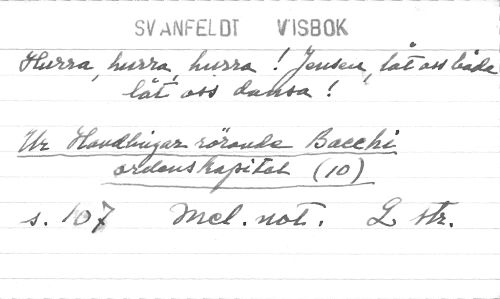 SVANFELDT VISBOK
Hurra, hurra, hurra! Jensen, låt oss båda
låt oss dansa!
Ur Handlingar rörande Bacchi
ordenskapitel (10)
s. 107 Mel. not. 2 str.